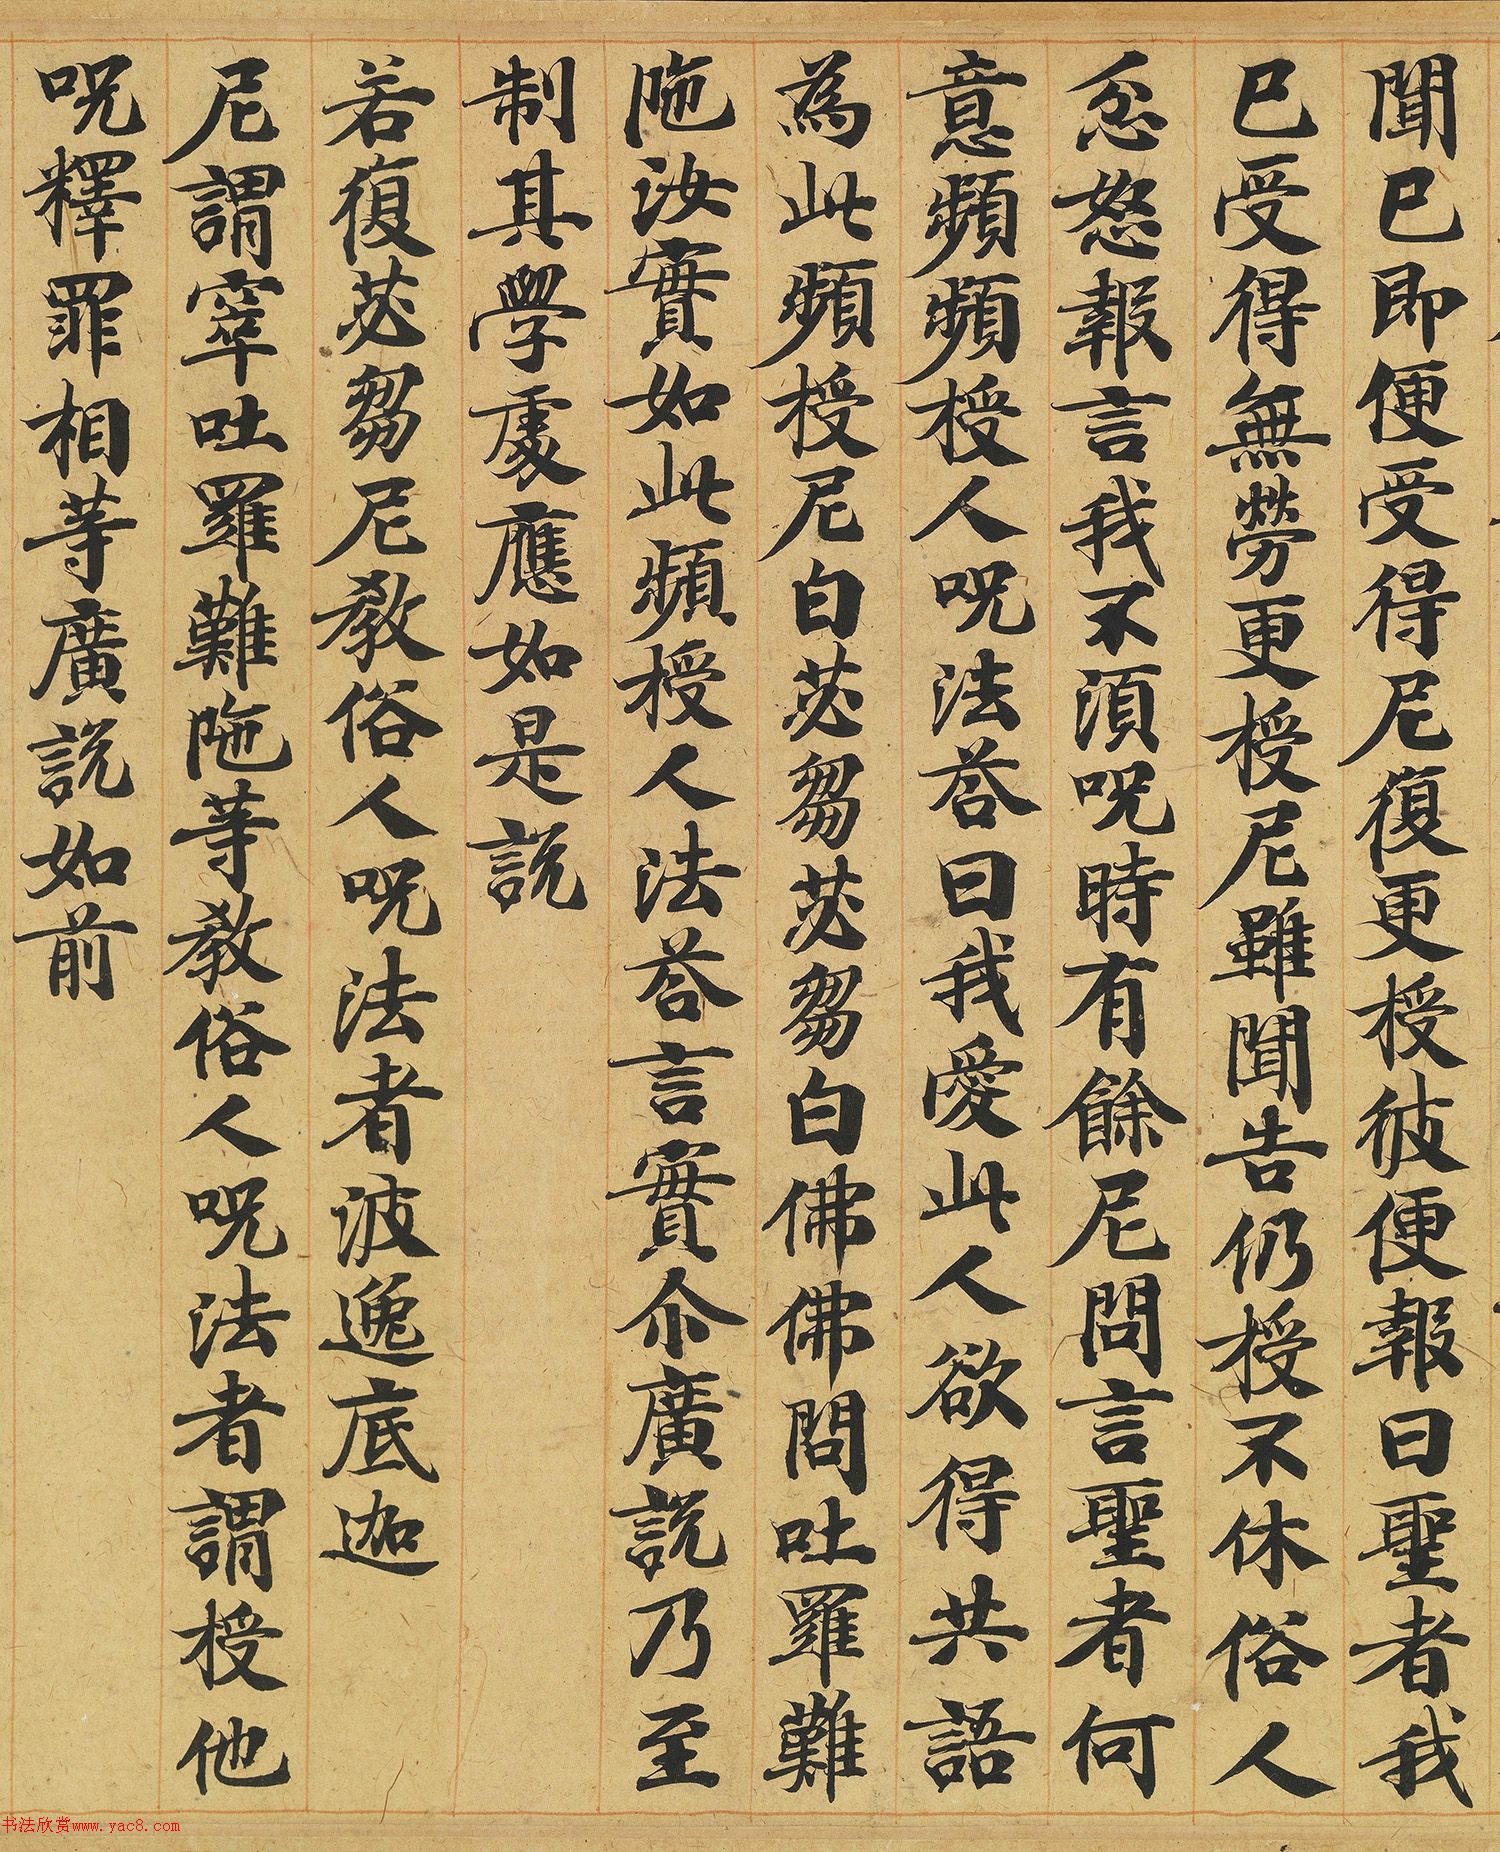 聞已即便受得尼復更授彼便報曰聖者我
已受得無勞更授尼雖聞告仍授不休俗人
忿怒報言我不須呪時有餘尼問言聖者何
意頻頻授人呪法荅曰我愛此人欲得共語
為此頻授尼白苾芻苾芻白佛佛問吐羅難
陁汝實如此頻授人法荅言實尒廣說乃至
制其學處應如是說
若復苾芻尼教俗人呪法者波逸底迦
尼謂窣吐羅難陁等教俗人呪法者謂授他
呪釋罪相等廣說如前
书法欣赏www.yac8.com